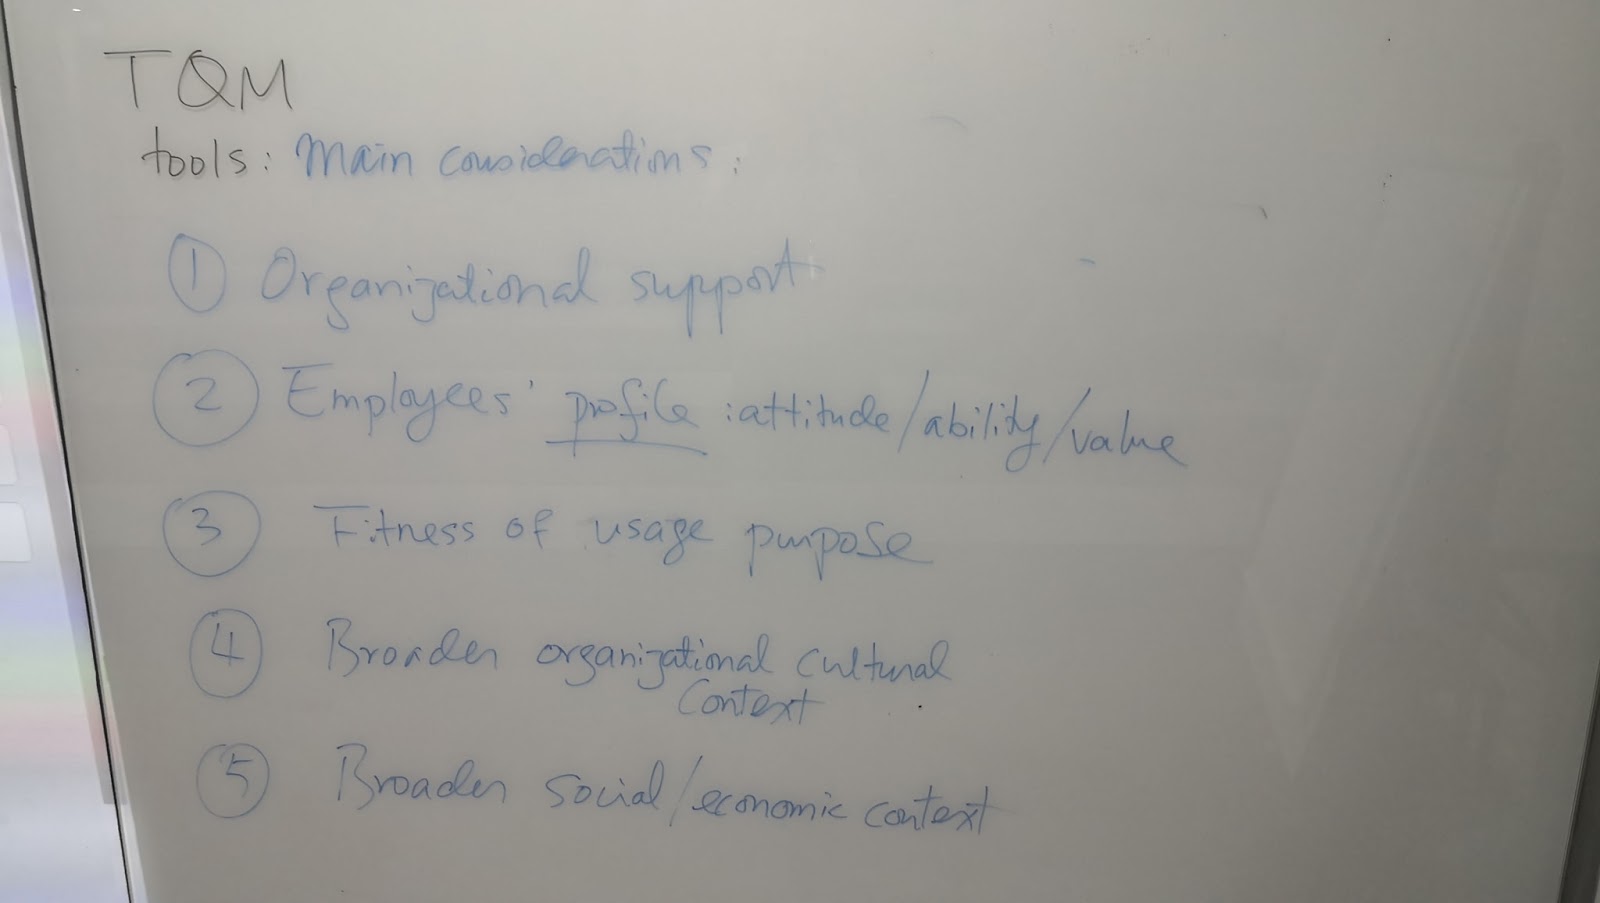 TQM
tools: Main considerations:
① Organizational support
② Employees' profile : attitude/ability/value
③ Fitness of usage purpose
④ Broader organizational cultural
context
⑤ Broader social/economic context